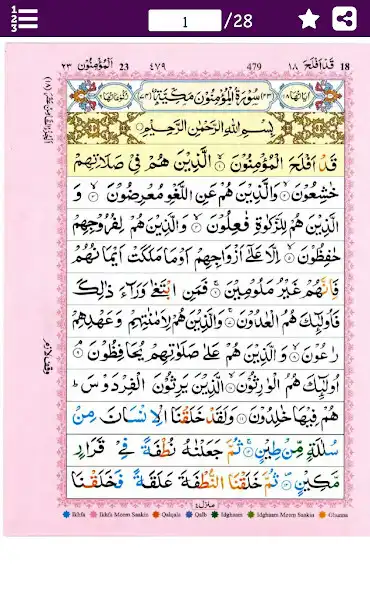 1 /28
18 قَدْ اَفْلَحَ ١٨ 479 ٤٧٩ 23 اَلْمُؤْمِنُوْن ٢٣
سُوْرَةُ الْمُؤْمِنُوْنَ مَكِّيَّةٌ
بِسْمِ اللّٰهِ الرَّحْمٰنِ الرَّحِيْمِ
قَدْ اَفْلَحَ الْمُؤْمِنُوْنَ ۙ۝۱ الَّذِيْنَ هُمْ فِيْ صَلَاتِهِمْ
خٰشِعُوْنَ ۙ۝۲ وَالَّذِيْنَ هُمْ عَنِ اللَّغْوِ مُعْرِضُوْنَ ۙ۝۳ وَ
الَّذِيْنَ هُمْ لِلزَّكٰوةِ فٰعِلُوْنَ ۙ۝۴ وَالَّذِيْنَ هُمْ لِفُرُوْجِهِمْ
حٰفِظُوْنَ ۙ۝۵ اِلَّا عَلٰٓى اَزْوَاجِهِمْ اَوْ مَا مَلَكَتْ اَيْمَانُهُمْ
فَاِنَّهُمْ غَيْرُ مَلُوْمِيْنَ ۚ۝۶ فَمَنِ ابْتَغٰى وَرَآءَ ذٰلِكَ
فَاُولٰٓئِكَ هُمُ الْعٰدُوْنَ ۚ۝۷ وَالَّذِيْنَ هُمْ لِاَمٰنٰتِهِمْ وَعَهْدِهِمْ
رٰعُوْنَ ۙ۝۸ وَالَّذِيْنَ هُمْ عَلٰى صَلَوٰتِهِمْ يُحَافِظُوْنَ ۘ۝۹
اُولٰٓئِكَ هُمُ الْوٰرِثُوْنَ ۙ۝۱۰ الَّذِيْنَ يَرِثُوْنَ الْفِرْدَوْسَ ؕ
هُمْ فِيْهَا خٰلِدُوْنَ ۝۱۱ وَلَقَدْ خَلَقْنَا الْاِنْسَانَ مِنْ
سُلٰلَةٍ مِّنْ طِيْنٍ ۚ۝۱۲ ثُمَّ جَعَلْنٰهُ نُطْفَةً فِيْ قَرَارٍ
مَّكِيْنٍ ۪۝۱۳ ثُمَّ خَلَقْنَا النُّطْفَةَ عَلَقَةً فَخَلَقْنَا
منزل ٤
Ikhfa Ikhfa Meem Saakin Qalqala Qalb Idghaam Idghaam Meem Saakin Ghunna
وقف لازم